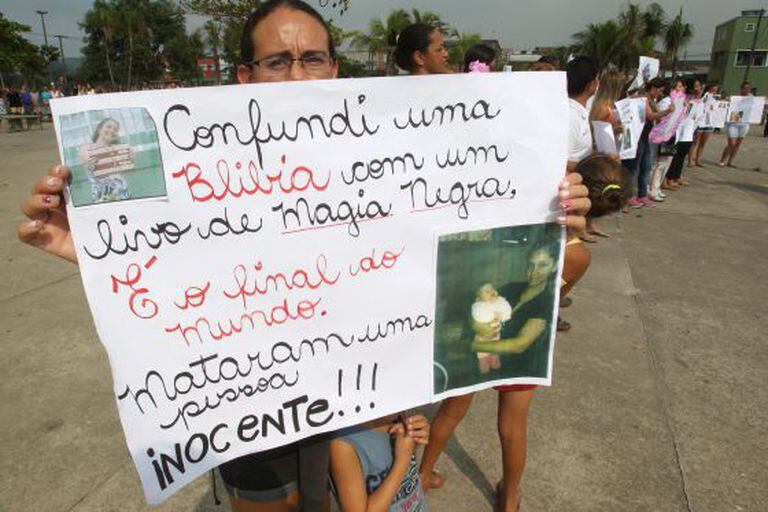 Confundi uma
Bliblia com um
livro de Magia Negra,
É o final do
mundo.
Mataram uma
pissoa
iNOCENTE!!!